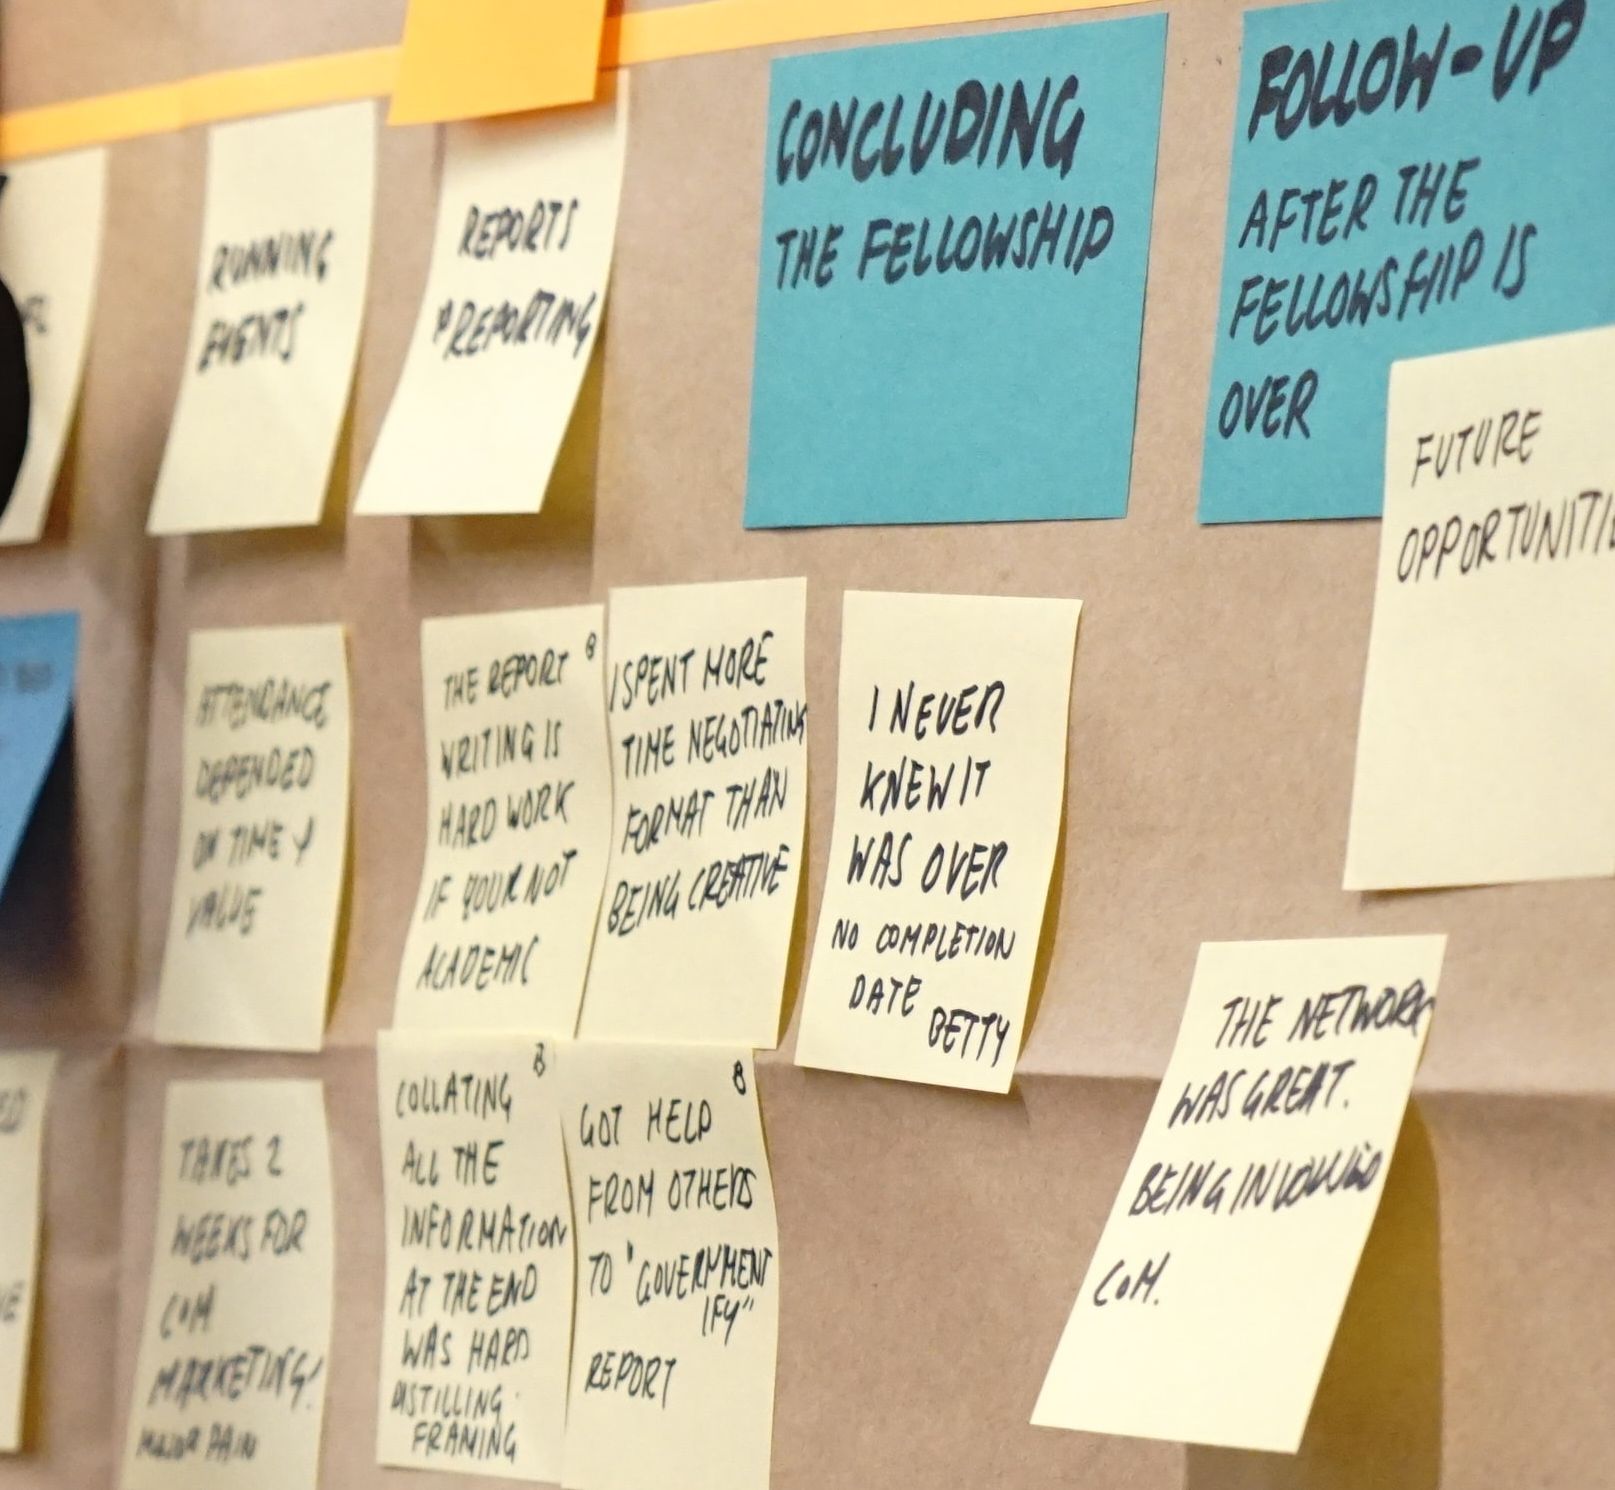 RUNNING
EVENTS
REPORTS
REPORTING
CONCLUDING
THE FELLOWSHIP
FOLLOW-UP
AFTER THE
FELLOWSHIP IS
OVER
FUTURE
ATTENDANCE
DEPENDED
ON TIME &
VALUE
THE REPORT B
WRITING IS
HARD WORK
IF YOUR NOT
ACADEMIC
I SPENT MORE
TIME NEGOTIATING
FORMAT THAN
BEING CREATIVE
I NEVER
KNEW IT
WAS OVER
NO COMPLETION
DATE
BETTY
TAKES 2
WEEKS FOR
COM
MARKETING!
MAJOR PAIN
B
COLLATING
ALL THE
INFORMATION
AT THE END
WAS HARD
DISTILLING.
FRAMING
B
GOT HELP
FROM OTHERS
TO "GOVERNMENT
IFY"
REPORT
THE NETWORK
WAS GREAT.
BEING INVOLVED
COM.